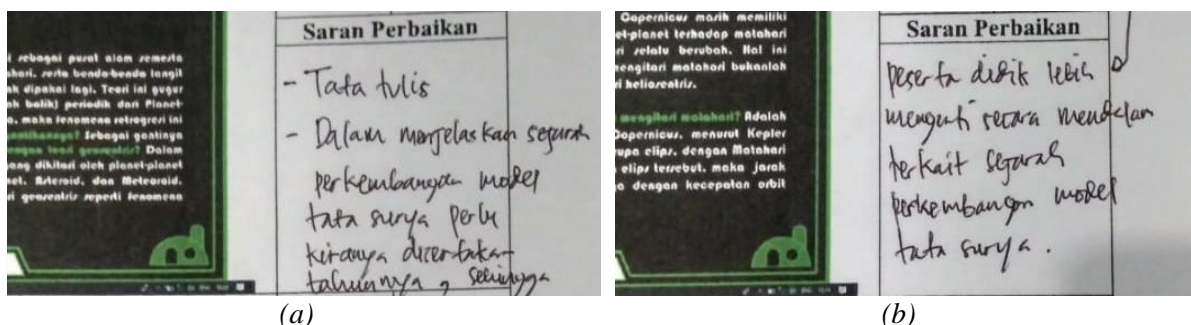 i sebagai pusat alam semesta
ahari, serta benda-benda langit
ak dipakai lagi. Teori ini gugur
ak balik) periodik dari Planet-
a, maka fenomena retrogresi ini
Sebagai gantinya
engan teori geosentris? Dalam
ang dikitari oleh planet-planet
net, Asteroid, dan Meteoroid.
ri geosentris seperti fenomena
Saran Perbaikan
- Tata tulis
- Dalam menjelaskan sejarah
perkembangan model
tata surya perlu
kiranya disertakan
tahunnya, sehingga
(a)
Copernicus masih memiliki
et-planet terhadap matahari
ri selalu berubah. Hal ini
engitari matahari bukanlah
ri heliosentris.
mengitari matahari? Adalah
Copernicus, menurut Kepler
upa elips, dengan Matahari
elips tersebut, maka jarak
a dengan kecepatan orbit
Saran Perbaikan
peserta didik lebih
mengerti secara mendalam
terkait sejarah
perkembangan model
tata surya.
(b)